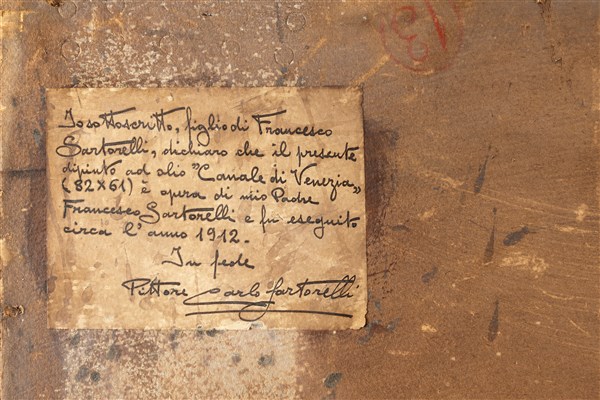 Io sottoscritto, figlio di Francesco
Sartorelli, dichiaro che il presente
dipinto ad olio "Canale di Venezia"
(82x61) è opera di mio Padre
Francesco Sartorelli e fu eseguito
circa l'anno 1912.-
In fede
Pittore Carlo Sartorelli